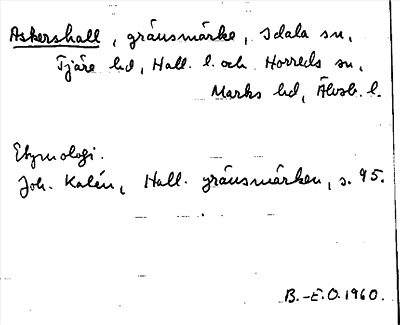 Askershall, gränsmärke, Idala sn,
Fjäre hd, Hall. l. och Horreds sn,
Marks hd, Älvsb. l.
Etymologi.
Joh. Kalén, Hall. gränsmärken, s. 95.
B.-E.O. 1960.